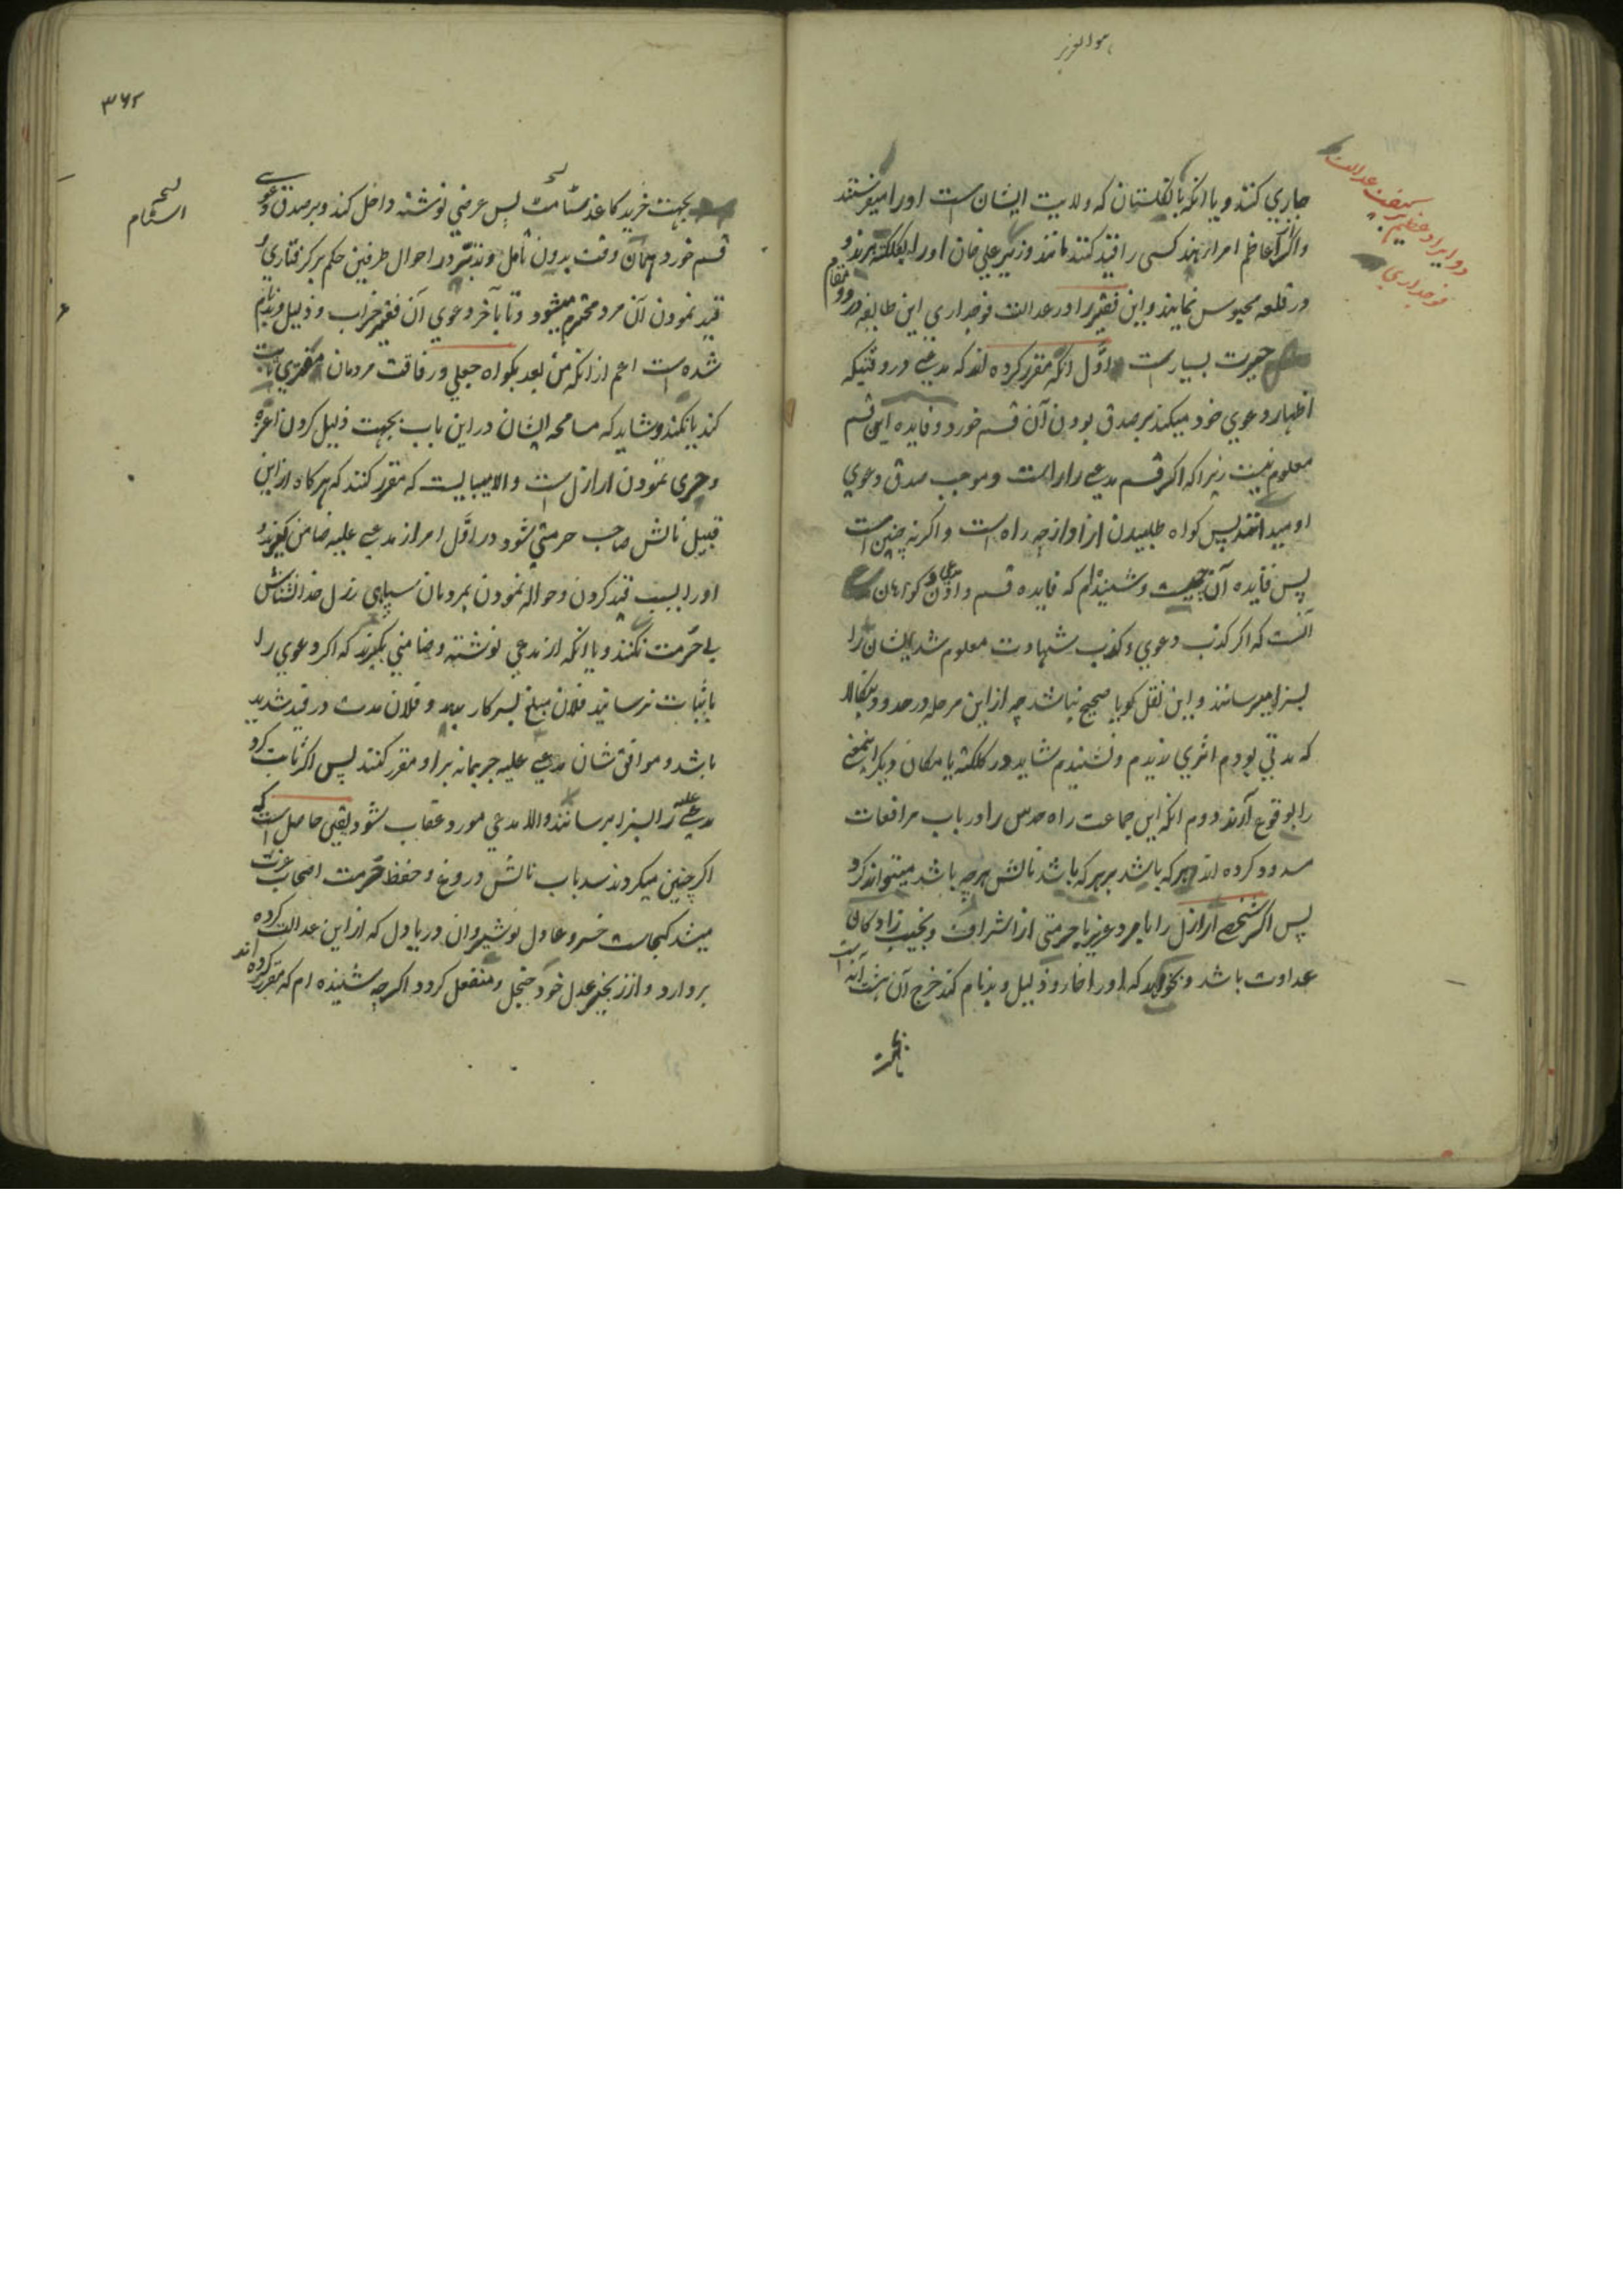 هوالعزیز
دو ایراد عظیم بر عدالت
فوجداری
جاری کنند و یا انکه بانکلستان که ولایت ایشان است اورا میفرستند
واکر از اعاظم امرا هند کسی را قید کنند مانند وزیر علی خان اورا بکلکته برند و
در قلعه محبوس نمایند و این فقیر را در عدالت فوجداری این طایفه در دو مقام
حیرت بسیار است اول انکه مقرر کرده اند که مدعی در وقتیکه
اظهار دعوی خود میکند بر صدق بودن آن قسم خورد و فایده این قسم
معلوم نیست زیرا که اکر قسم مدعی را راست و موجب صدق دعوی
او میدانند پس کواه طلبیدن از او از چه راه است و اکر نه چنین است
پس فایده آن چیست و شنیدم که فایده قسم دادن مدعی و کواهان
آنست که اکر کذب دعوی و کذب شهادت معلوم شد ایشان را
بسزا میرسانند و این نقل کویا صحیح نباشد چه از این مرحله در حدود بنکاله
که مدتی بودم اثری ندیدم و نشنیدم شاید در کلکته یا مکان دیکر اینمعنی
را بوقوع آرند دوم انکه این جماعت راه حدس را در باب مرافعات
مسدود کرده اند هر که باشد بر هر که باشد نالش هر چه باشد میتواند کرد
پس اکر شخصی از اراذل را با مرد عزیز با حرمتی از اشراف و نجیب زادکان
عداوت باشد و بخواهد که اورا خار و ذلیل و بدنام کند خرج آن هشت آنه است
بجهت
۳۶۲
بجهت خرید کاغذ پس عرضی نوشته داخل کند و بر صدق دعوی
قسم خورد همان وقت بدون تامل و تدبر در احوال طرفین حکم بر کرفتاری و
قید نمودن آن مرد محترم میشود و تا بآخر دعوی آن فقیر خراب و ذلیل و بدنام
شده است اعم از انکه من بعد بکواه جعلی و رفاقت مردمان مفتری ثابت
کند یا نکند و شاید که مسامحه ایشان در این باب بجهت ذلیل کردن اعزه
و جری نمودن اراذل است و الا میبایست که مقرر کنند که هرکاه از این
قبیل نالش صاحب حرمتی شود در اول امر از مدعی علیه ضامن بکیرند و
اورا بسبب قید کردن و حواله نمودن بمردمان سپاهی رذل خدانشناس
بی حرمت نکنند و یا انکه از مدعی نوشته و ضامنی بکیرند که اکر دعوی را
باثبات نرساند فلان مبلغ بسرکار بدهد و فلان مدت در قید شدید
باشد و موافق شان مدعی علیه جریمانه بر او مقرر کنند پس اکر ثابت کرد
مدعی علیه را بسزا برسانند و الا مدعی مورد عقاب شود یقین حاصل است که
اکر چنین میکردند سد باب نالش دروغ و حفظ حرمت اصحاب عزت
میشد کجاست خسرو عادل نوشیروان دریا دل که از این عدالت کرده
بردارد و از زنجیر عدل خود خجل و منفعل کردد اکرچه شنیده ام که مقرر کرده اند